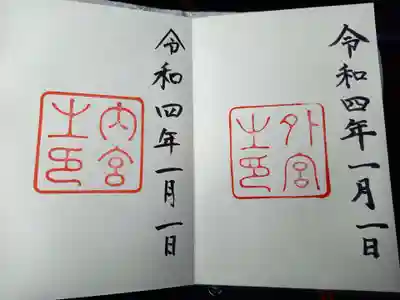 令和四年一月一日
外宮之印
令和四年一月一日
内宮之印